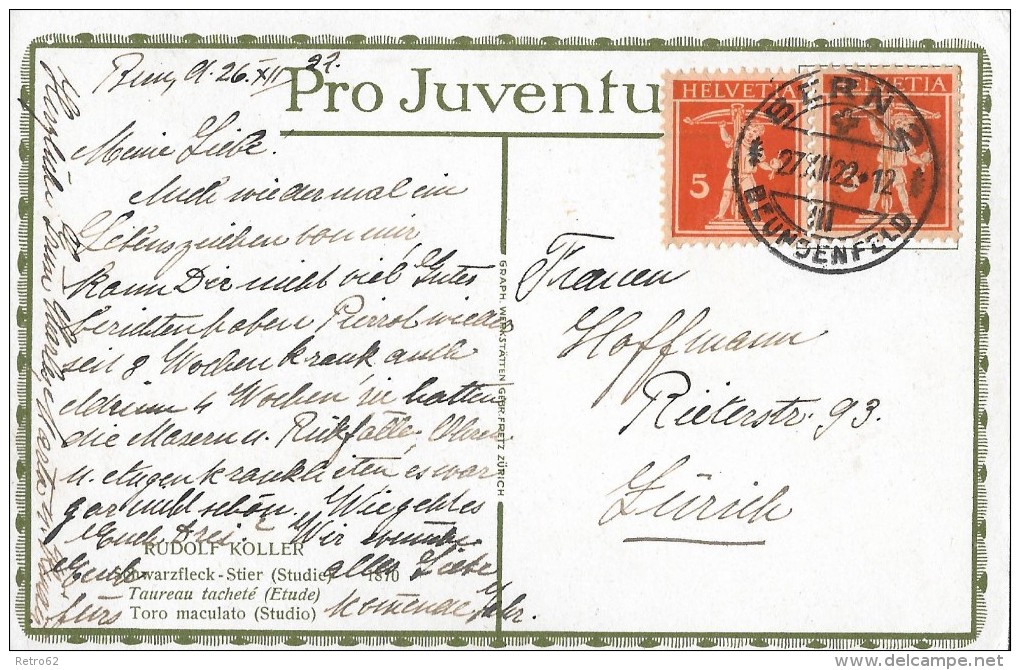 Bern, d. 26. XII 22.
Pro Juventu
Meine Liebe.
Auch wieder mal ein
Lebenszeichen von mir
kann Dir nicht viel Gutes
berichten haben Pierrot wieder
seit 8 Wochen krank auch
4 Wochen hatten
die Masern u. Rükfälle, Ohren
u. Augenkrankheiten, es war
gar nicht schön. Wie geht es
Euch drei? Wir
alles Liebe
fürs kommende Jahr.
Herzliche
RUDOLF KOLLER
Schwarzfleck-Stier (Studie) 1870
Taureau tacheté (Etude)
Toro maculato (Studio)
GRAPH. WERKSTÄTTEN GEBR. FRETZ ZÜRICH
HELVETIA
5
HELVETIA
5
BERN 2
27.XII.22.-12
III
BEUNDENFELD
Frauen
Hoffmann
Rieterstr. 93.
Zürich
Retro62
delcampe.net